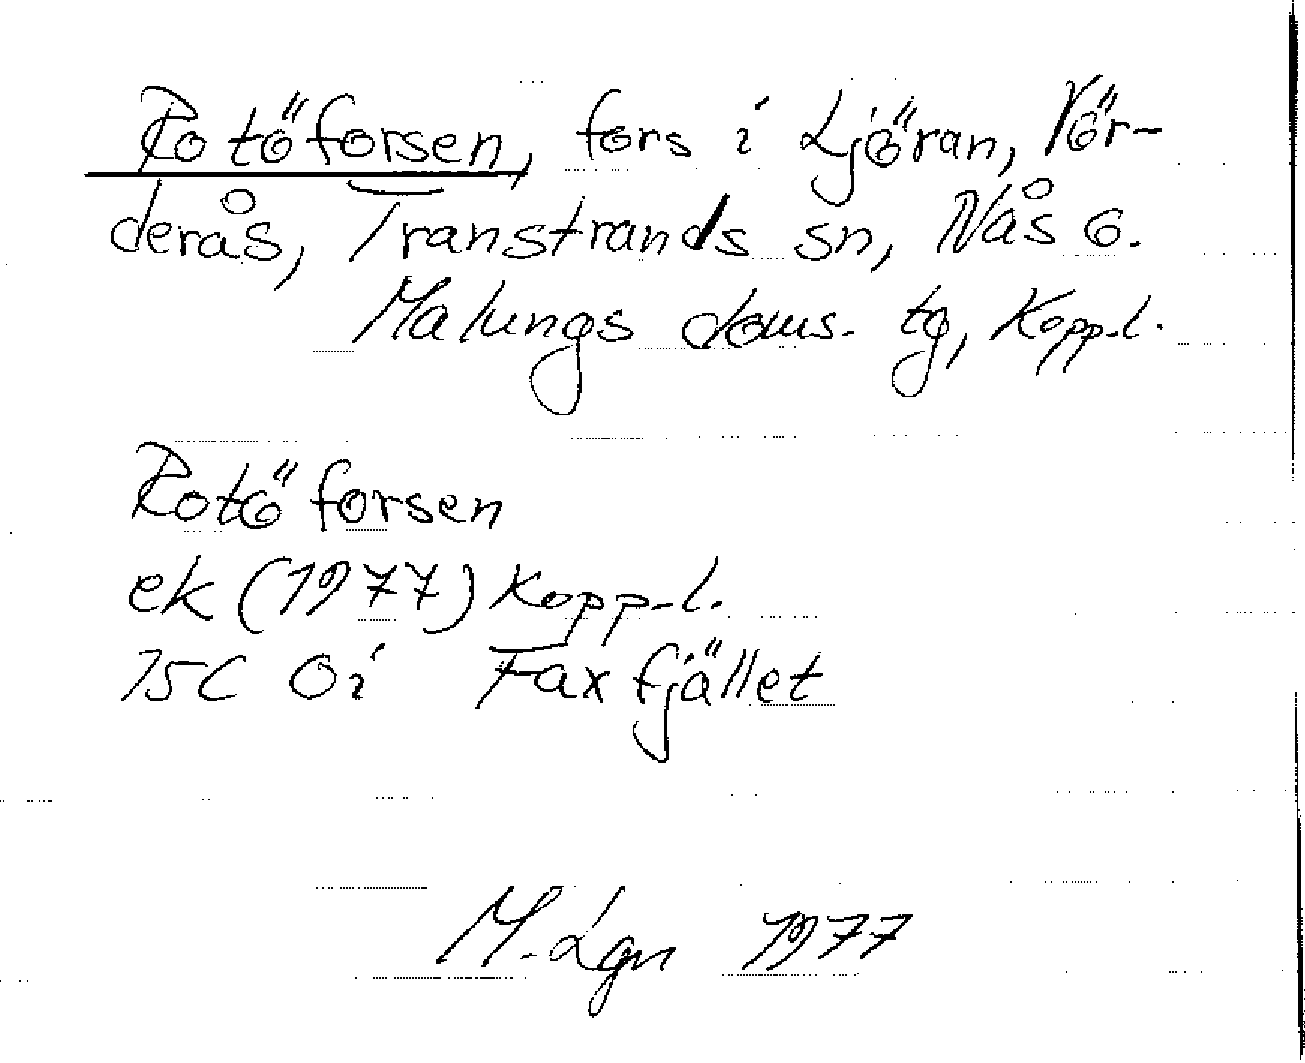 Rotöforsen, fors i Ljöran, Vör-
derås, Transtrands sn, Nås o.
Malungs doms. tg, Kopp.l.
Rotöforsen
ek (1977) Kopp-l.
15C 0i Faxfjället
M. Lgn 1977